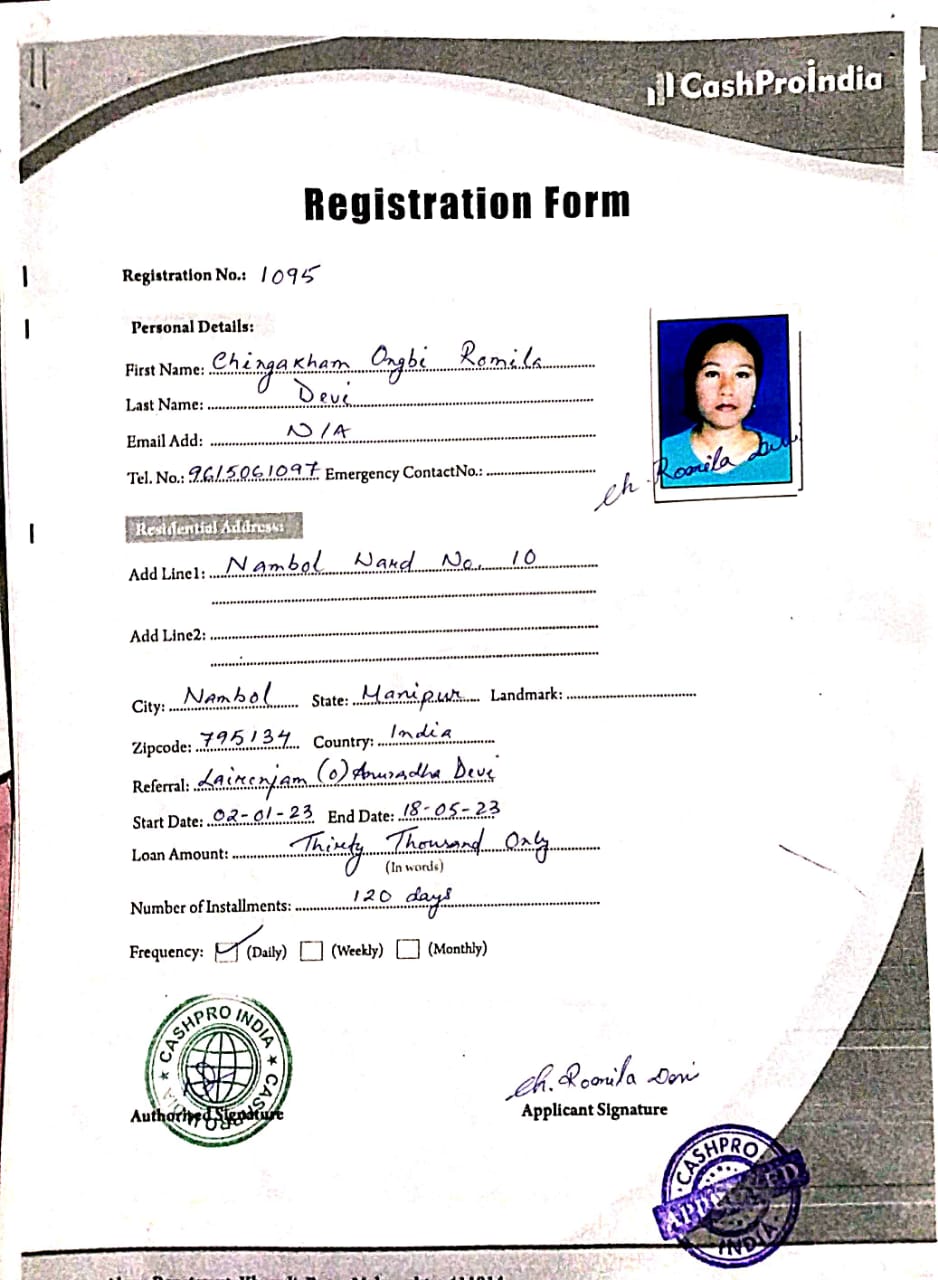 CashProIndia
Registration Form
Registration No.: 1095
Personal Details:
First Name: Chingakham Ongbi Romila
Last Name: Devi
Email Add: N/A
Tel. No.: 9615061097 Emergency ContactNo.:
Ch. Romila Devi
Residential Address:
Add Line1: Nambol Ward No. 10
Add Line2:
City: Nambol State: Manipur Landmark:
Zipcode: 795134 Country: India
Referral: Lairenjam (o) Anuradha Devi
Start Date: 02-01-23 End Date: 18-05-23
Loan Amount: Thirty Thousand Only
(In words)
Number of Installments: 120 days
Frequency: (Daily) (Weekly) (Monthly)
CASHPRO INDIA ★ CASHPRO INDIA ★
Authorised Signature
Ch. Romila Devi
Applicant Signature
CASHPRO
APPROVED
INDIA